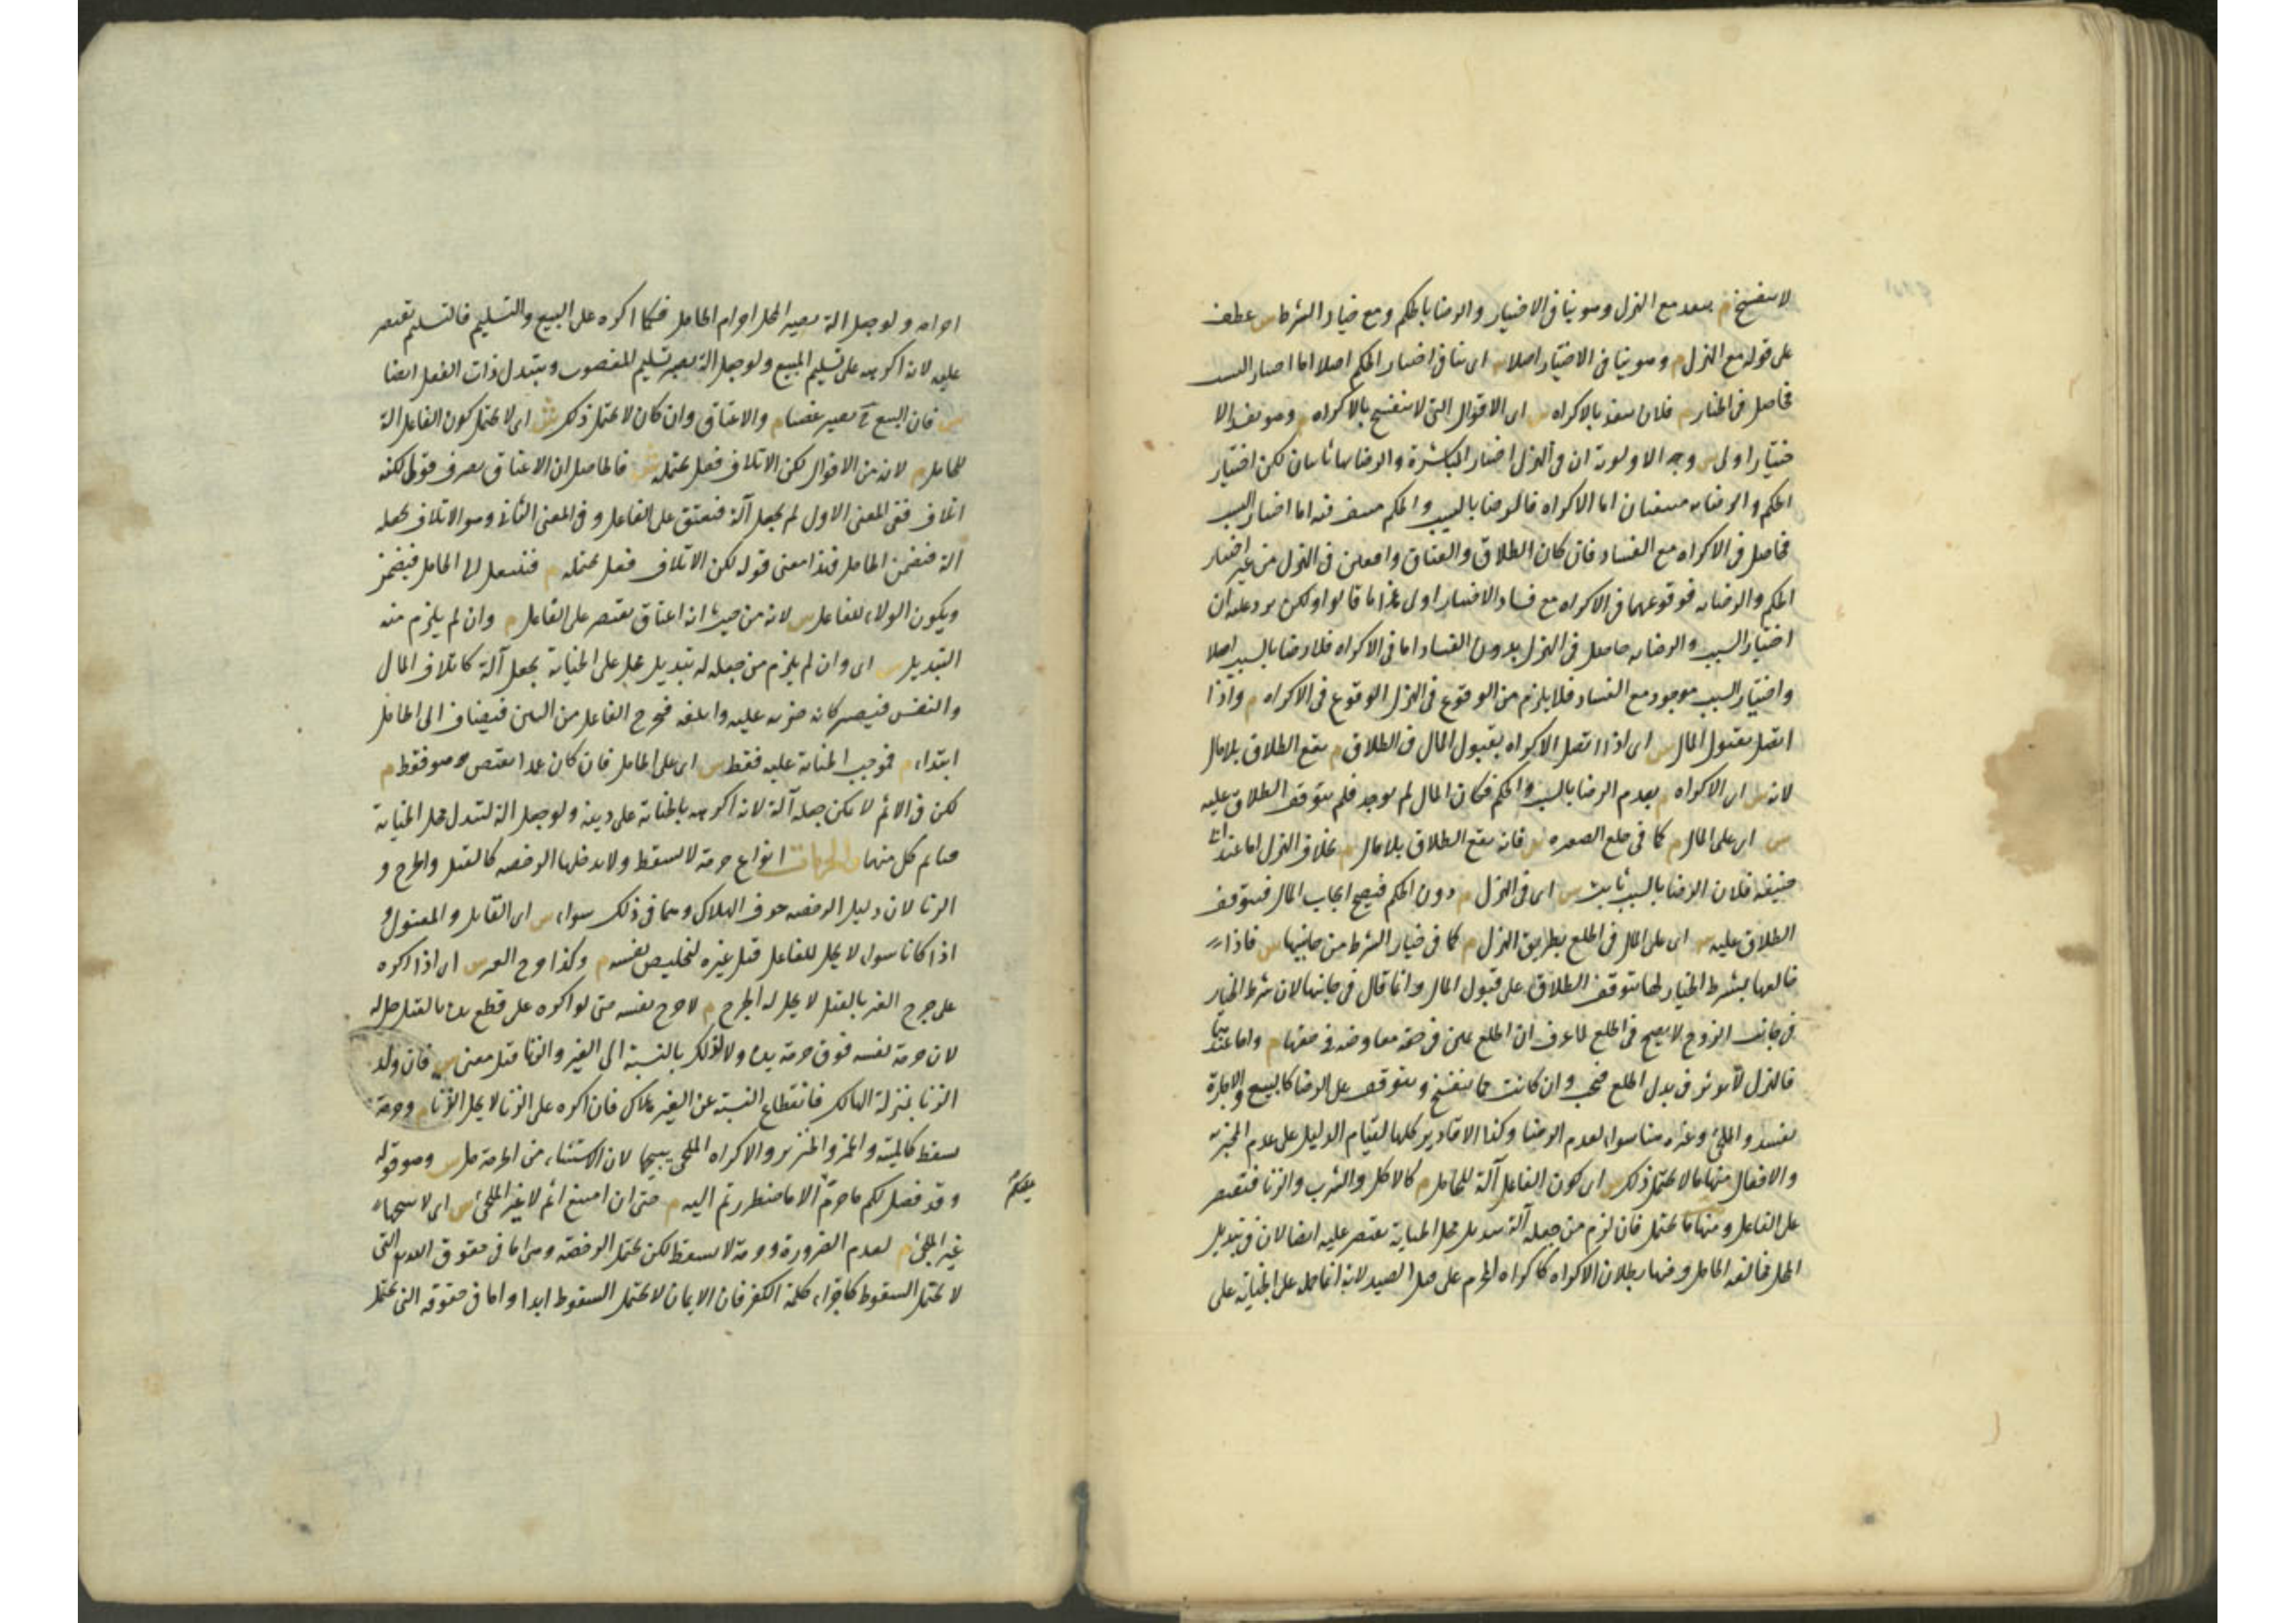 لا ينفسخ م ينعقد مع الهزل وهو ينافى الاختيار والرضا بالحكم ومع خيار الشرط س عطف
على قوله مع الهزل م وهو ينافى الاختيار اصلا س اى ينافى اختيار الحكم اصلا اما اختيار السبب
فحاصل فى الخيار م فلان ينفذ بالاكراه س اى الاقوال التى لا تنفسخ بالاكراه م وهو يفسد الا
ختيار اولى س وجه الاولوية ان فى الهزل اختيار المباشرة والرضا بها ثابتان لكن اختيار
الحكم والرضا به منتفيان اما الاكراه فالرضا بالسبب والحكم منتف فيه اما اختيار السبب
فحاصل فى الاكراه مع الفساد فان كان الطلاق والعتاق واقعين فى الهزل من غير اختيار
الحكم والرضا به فوقوعهما فى الاكراه مع فساد الاختيار اولى هذا ما قالوا ولكن يرد عليه ان
اختيار السبب والرضا به حاصل فى الهزل بدون الفساد اما فى الاكراه فلا رضا بالسبب اصلا
واختيار السبب موجود مع الفساد فلا يلزم من الوقوع فى الهزل الوقوع فى الاكراه م واذا
اتصل بقبول المال س اى اذا اتصل الاكراه بقبول المال فى الطلاق م يقع الطلاق بلا مال
لانه س اى الاكراه م يعدم الرضا بالسبب والحكم فكان المال لم يوجد فلم يتوقف الطلاق عليه
س اى على المال م كما فى خلع الصغيرة س فانه يقع الطلاق بلا مال م بخلاف الهزل اما عند ابى
حنيفة فلان الرضا بالسبب ثابت س اى فى الهزل م دون الحكم فيصح ايجاب المال فيتوقف
الطلاق عليه س اى على المال فى الخلع بطريق الهزل م كما فى خيار الشرط من جانبها س فاذا
خالعها بشرط الخيار لها يتوقف الطلاق على قبول المال وانما قال فى جانبها لان شرط الخيار
فى جانب الزوج لا يصح فى الخلع لما عرف ان الخلع يمين فى حقه معاوضة فى حقها م واما عندهما
فالهزل لا يؤثر فى بدل الخلع فيجب وان كانت مما ينفسخ ويتوقف على الرضا كالبيع والاجارة
يفسد والملجئ وغيره هنا سواء لعدم الرضا وكذا الاقارير كلها لقيام الدليل على عدم المخبر به
والافعال منها ما لا يحتمل ذلك س اى كون الفاعل آلة للحامل م كالاكل والشرب والزنا فيقتصر
على الفاعل ومنها ما يحتمل فان لزم من جعله آلة تبديل محل الجناية يقتصر عليه ايضا لان فى تبديل
المحل مخالفة الحامل وفيها بطلان الاكراه كاكراه المحرم على قتل الصيد لانه انما حمله على الجناية على
احرامه ولو جعل آلة يصير المحل احرام الحامل وكما اكره على البيع والتسليم فالتسليم يقتصر
عليه لانه اكرهه على تسليم المبيع ولو جعل آلة يصير تسليم المغصوب ويتبدل ذات الفعل ايضا
س فان البيع ح يصير غصبا م والاعتاق وان كان لا يحتمل ذلك ش اى لا يحتمل كون الفاعل آلة
للحامل م لانه من الاقوال لكن الاتلاف فعل يحتمله ش فالحاصل ان الاعتاق تصرف قولى لكنه
اتلاف ففى المعنى الاول لم يجعل آلة فيعتق على الفاعل وفى المعنى الثانى وهو الاتلاف يجعله
آلة فيضمن الحامل فهذا معنى قوله لكن الاتلاف فعل يحتمله م فينتقل الى الحامل فيضمن
ويكون الولاء للفاعل س لانه من حيث انه اعتاق يقتصر على الفاعل م وان لم يلزم منه
التبديل س اى وان لم يلزم من جعله له تبديل محل الجناية يجعل آلة كاتلاف المال
والنفس فيصير كانه ضربه عليه واتلفه فخرج الفاعل من البين فيضاف الى الحامل
ابتداء م فموجب الجناية عليه فقط س اى على الحامل فان كان عمدا يقتص هو فقط م
لكن فى الاثم لا يمكن جعله آلة لانه اكرهه بالجناية على دينه ولو جعل آلة لتبدل محل الجناية
فيأثم كل منهما والحرمات انواع حرمة لا تسقط ولا يدخلها الرخصة كالقتل والجرح و
الزنا لان دليل الرخصة خوف الهلاك وهما فى ذلك سواء س اى القاتل والمقتول و
اذا كانا سواء لا يحل للفاعل قتل غيره لتخليص نفسه م وكذا جرح الغير س اى اذا اكره
على جرح الغير بالقتل لا يحل له الجرح م لا جرح نفسه حتى لو اكره على قطع يده بالقتل حل له
لان حرمة نفسه فوق حرمة يده ولا كذلك بالنسبة الى الغير والزنا قتل معنى س فان ولد
الزنا بمنزلة الهالك فانقطاع النسبة عن الغير هلاك فان اكره على الزنا لا يحل الزنا م وحرمة
تسقط كالميتة والخمر والخنزير والاكراه الملجئ يبيحها لان الاستثناء من الحرمة حل س وهو قوله
وقد فصل لكم ما حرم الا ما اضطررتم اليه م حتى ان امتنع اثم لا غير الملجئ س اى لا يبيحها
عليكم
غير الملجئ م لعدم الضرورة وحرمة لا تسقط لكن تحتمل الرخصة وهى اما فى حقوق الله التى
لا تحتمل السقوط كاجراء كلمة الكفر فان الايمان لا يحتمل السقوط ابدا واما فى حقوقه التى تحتمل